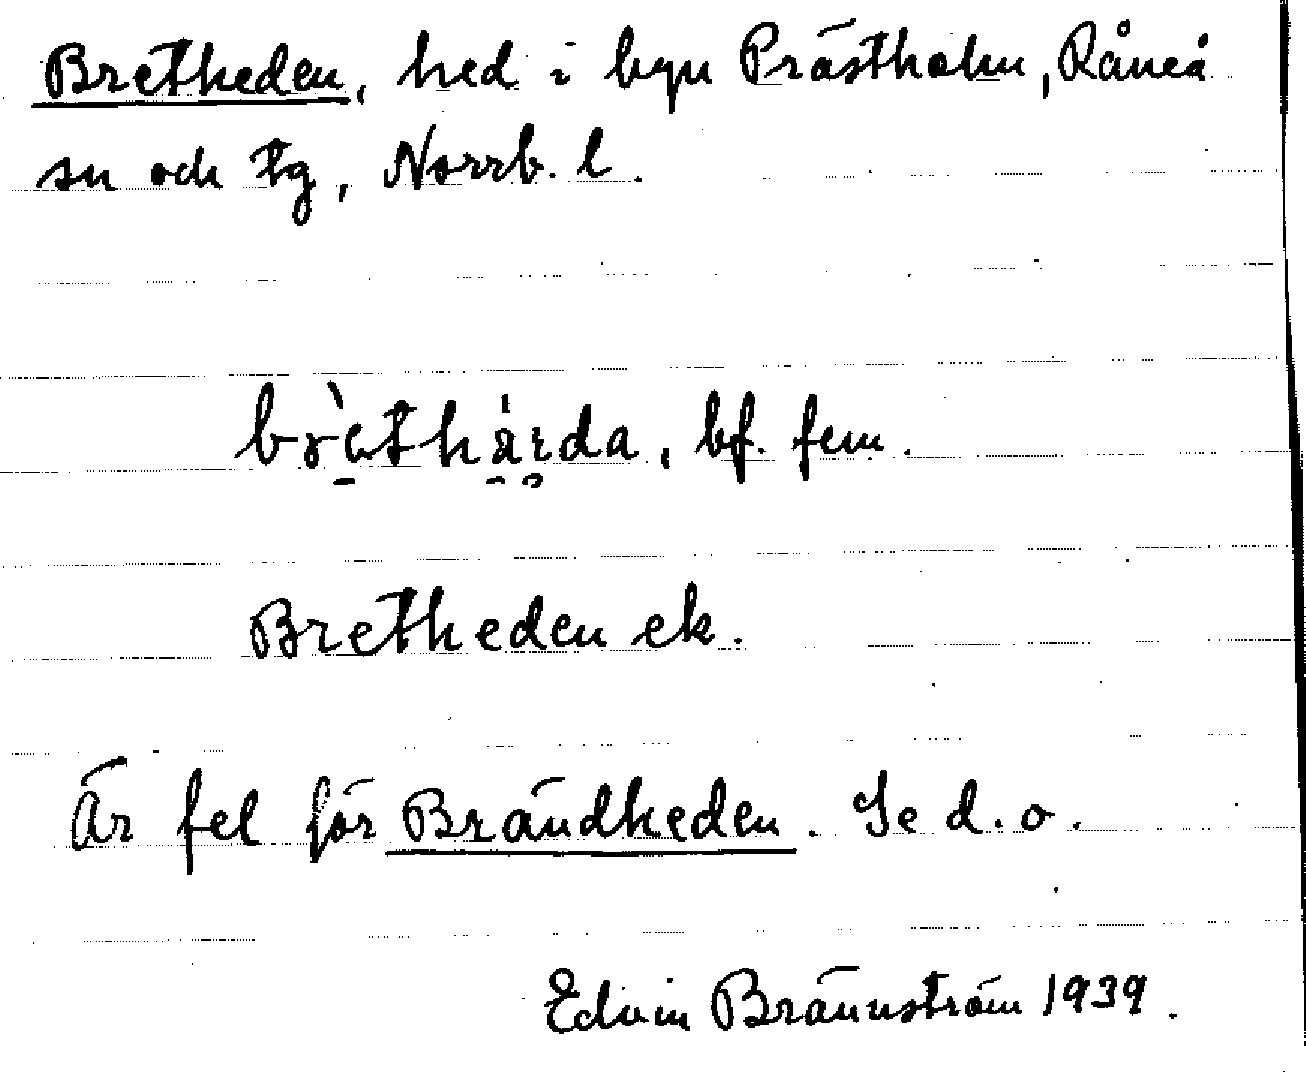 Bretheden, hed i byn Prästholm, Råneå
sn och tg, Norrb. l.
brèthą́rda, bf. fem.
Bretheden ek.
Är fel för Brändheden. Se d. o.
Edvin Brännström 1939.